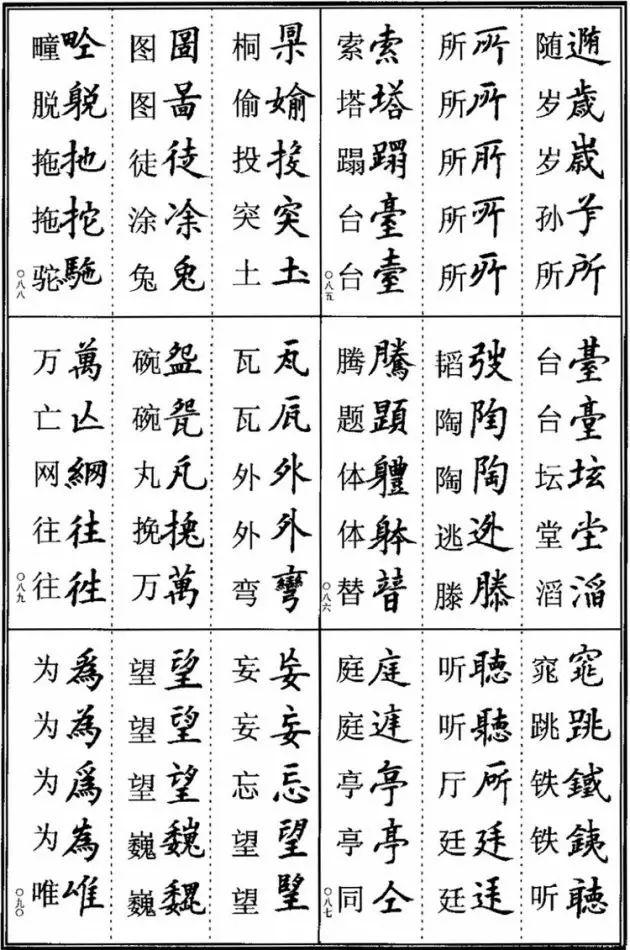 随
岁歳
岁歳
孙
所所
所所
所所
所所
所所
所所
索索
塔塔
蹋蹋
台臺
台臺
〇八五
台臺
台臺
坛坛
堂坣
滔滔
韬弢
陶陶
陶陶
逃迯
滕滕
腾騰
题題
体軆
体躰
替
〇八六
窕窕
跳跳
铁鐵
铁銕
听聴
听聽
听聽
厅
廷廷
廷
庭庭
庭
亭亭
亭亭
同仝
〇八七
桐
偷媮
投投
突突
土圡
图圖
图啚
徒徒
涂凃
兔兎
疃
脱
拖扡
拖拕
驼駞
〇八八
瓦
瓦
外外
外外
弯彎
碗盌
碗
丸
挽
万萬
万萬
亡亾
网網
往往
往徃
〇八九
妄
妄妄
忘
望望
望
望望
望望
望望
巍巍
巍
为為
为為
为爲
为為
唯
〇九〇